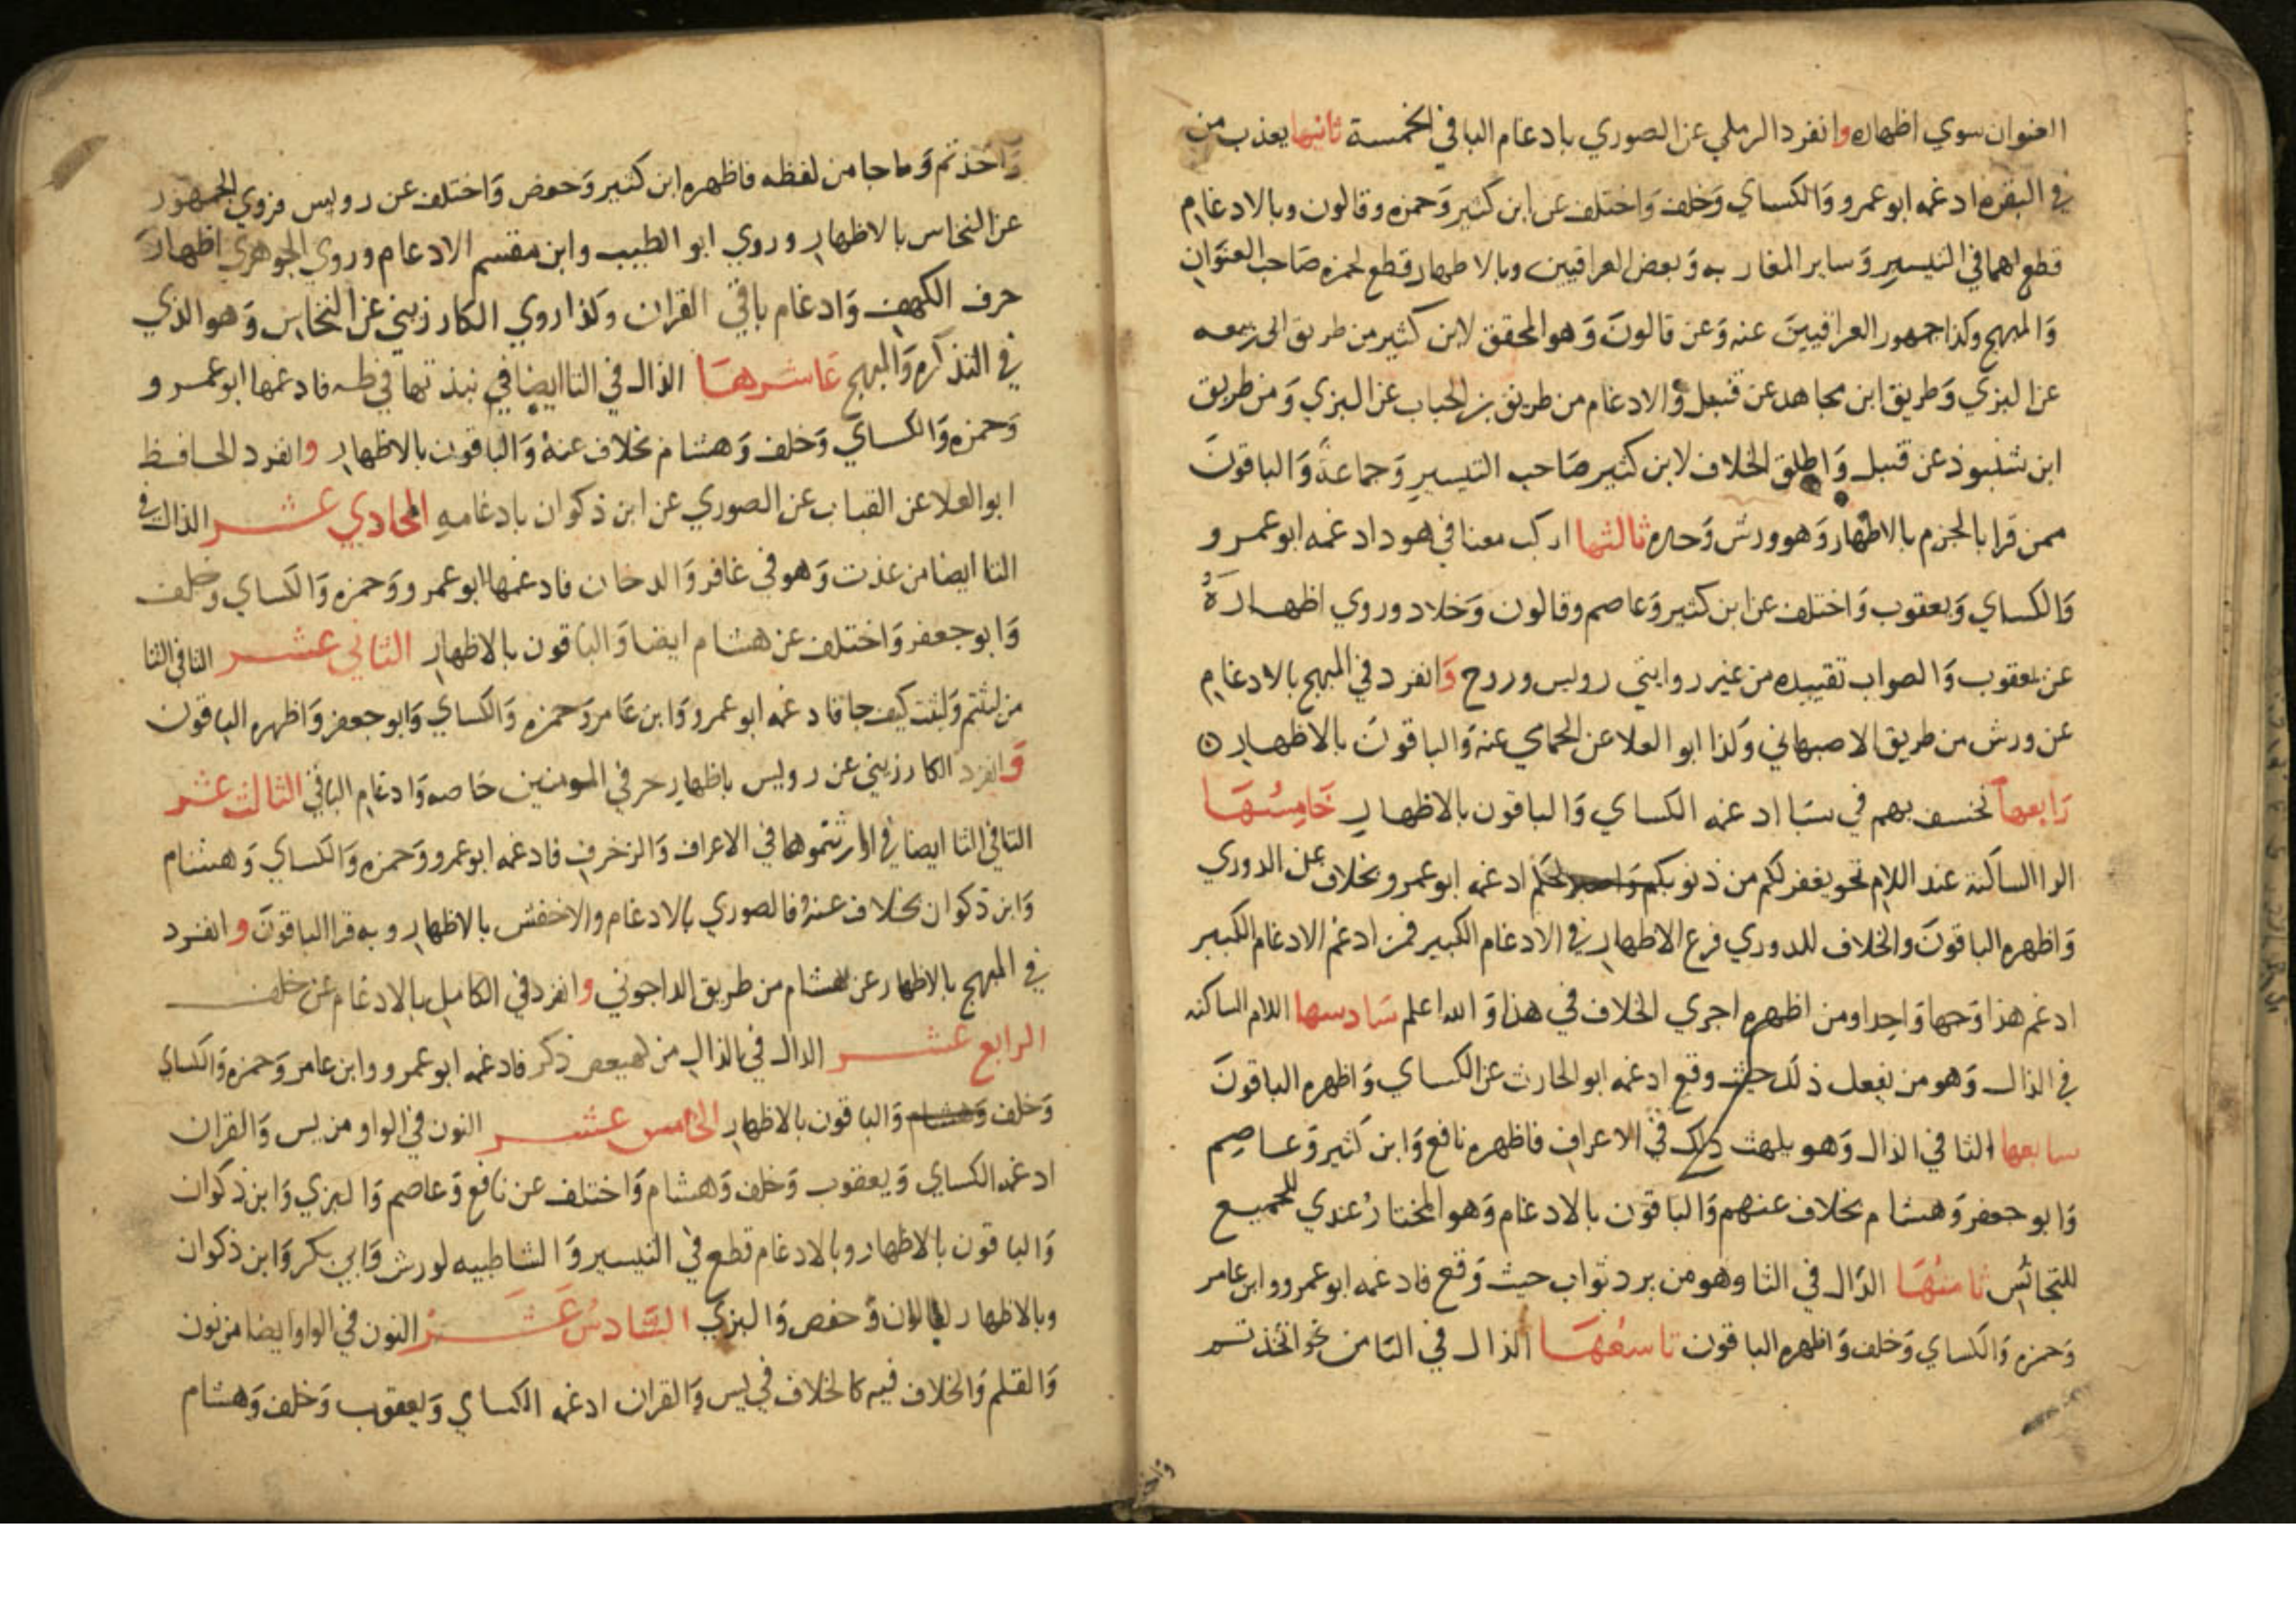 العنوان سوي اظهاره وانفرد الرملي عن الصوري بادغام الباقي الخمسة ثانيها يعذب من
في البقره ادغمه ابو عمرو وَالكساي وَخلف وَاختلف عن ابن كثير وَحمزه وقالون وبالادغام
قطع لهما في التيسير وَساير المغاربه وَبعض العراقيين وبالاظهار قطع لحمزه صَاحب العنوَان
وَالمبهج وكذا جمهور العراقيينَ عنه وَعن قالونَ وَهو المحقق لابن كثير من طريق ابي ربيعه
عن البزي وَطريق ابن مجاهد عن قنبل وَالادغام من طريق بن الحباب عن البزي وَمن طريق
ابن شنبوذ عن قنبل وَاطلق الخلاف لابن كثير صَاحب التيسير وَجماعة وَالباقونَ
ممن قرا بالجزم بالاظهار وَهو ورش وَحده ثالثها اركب معنا في هود ادغمه ابو عمرو
وَالكساي وَيعقوب وَاختلف عن ابن كثير وَعاصم وقالون وَخلاد وروي اظهاره
عن يعقوب وَالصواب تقييده من غير روايتي رويس وروح وَانفرد في المبهج بالادغام
عن ورش من طريق الاصبهاني وَكذا ابو العلا عن الحمامي عنه وَالباقونَ بالاظهار
رَابعها نخسف بهم في سَبا ادغمه الكساي وَالباقون بالاظهار خَامِسُهَا
الرا الساكنه عند اللام نحو يغفر لكم من ذنوبكم وَاصبر لحكم ادغمه ابو عمرو بخلاف عن الدوري
وَاظهره الباقونَ والخلاف للدوري فرع الاظهار في الادغام الكبير فمن ادغم الادغام الكبير
ادغم هذا وَجها وَاحِدا ومن اظهره اجري الخلاف في هذا وَالله اعلم سَادسها اللام الساكنه
في الذال وَهو من يفعل ذلك حيث وقع ادغمه ابو الحارث عن الكساي وَاظهره الباقونَ
سابعها الثا في الذال وَهو يلهث ذلك في الاعراف فاظهره نافع وَابن كثير وَعاصِم
وَابو جعفر وَهشام بخلاف عنهم وَالباقون بالادغام وَهو المختار عندي للجميع
للتجانُس ثامنُهَا الدّال في الثا وهو من يرد ثواب حيث وَقع فادغمه ابو عمرو وابن عامر
وَحمزه وَالكساي وَخلف وَاظهره الباقون تاسعُهَا الذال في التا من نحو اتخذتم
وَاخذتم وَما جا من لفظه فاظهره ابن كثير وَحفص وَاختلف عن رويس فروي الجمهور
عن النخاس بالاظهار وروي ابو الطيب وابن مقسم الادغام وروي الجوهري اظهارَ
حرف الكهف وَادغام باقي القران وكذا روي الكارزيني عن النخاس وَهو الذي
في التذكره وَالمبهج عَاشرهَا الذال في التا ايضا في نبذتها في طه فادغمها ابو عمرو
وَحمزه وَالكساي وَخلف وَهشام بخلاف عنهُ وَالباقون بالاظهار وانفرد الحافظ
ابو العلا عن القباب عن الصوري عن ابن ذكوان بادغامه الحادي عشر الذال في
التا ايضا من عذت وَهو في غافر وَالدخان فادغمها ابو عمرو وَحمزه وَالكساي وَخلف
وَابو جعفر وَاختلف عن هشام ايضا وَالباقون بالاظهار الثاني عشر الثا في التا
من لبثتم وَلبثت كيف جا فادغمه ابو عمرو وَابن عَامر وَحمزه وَالكساي وَابو جعفر وَاظهره الباقون
وَانفرد الكارزيني عن رويس باظهار حرفي المومنين خاصه وَادغام الباقي الثالث عشر
الثا في التا ايضا في اورثتموها في الاعراف وَالزخرف فادغمه ابو عمرو وَحمزه وَالكساي وَهشام
وَابن ذكوان بخلاف عنهُ فالصوري بالادغام والاخفش بالاظهار وبه قرا الباقونَ وانفرد
في المبهج بالاظهار عن هشام من طريق الداجوني وانفرد في الكامل بالادغام عن خلف
الرابع عشر الدال في الذال من كهيعص ذكر فادغمه ابو عمرو وابن عامر وَحمزه وَالكساي
وَخلف وَهشام وَالباقون بالاظهار الخامس عشر النون في الواو من يس وَالقران
ادغمه الكساي وَيعقوب وَخلف وَهشام وَاختلف عن نافع وَعاصم وَالبزي وَابن ذكوان
وَالباقون بالاظهار وبالادغام قطع في التيسير وَالشاطبيه لورش وَابي بكر وَابن ذكوان
وبالاظهار لقالون وَحفص وَالبزي السَّادسُ عَشَر النون في الواو ايضا من نون
وَالقلم وَالخلاف فيه كالخلاف في يس وَالقران ادغمه الكساي وَيعقوب وَخلف وَهشام